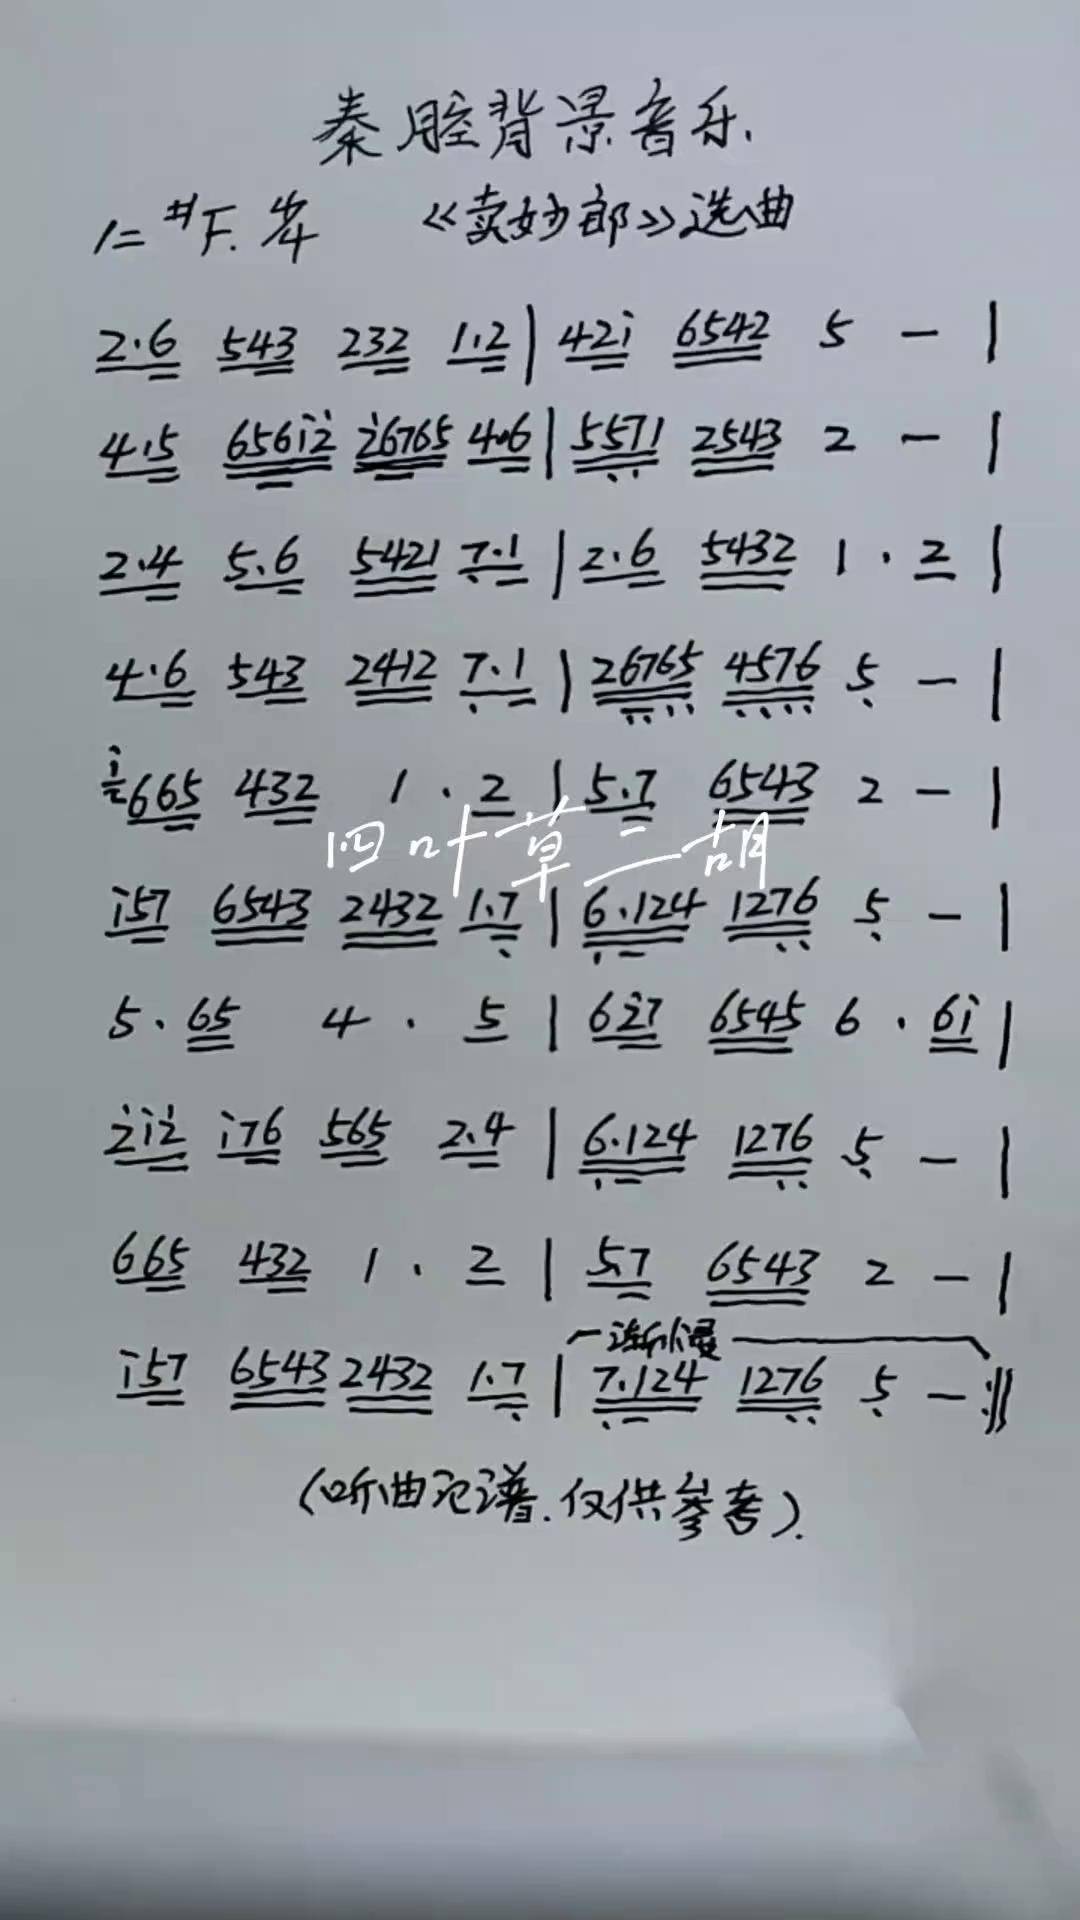 秦腔背景音乐.
1=#F. 4/4 《卖妙郎》选曲
2.6 543 232 1.2 | 42i 6542 5 - |
4.5 656i2̇ 2̇6765 4.6 | 5571 2543 2 - |
2.4 5.6 5421 7.1 | 2.6 5432 1 . 2 |
4.6 543 2412 7.1 | 26765 4576 5 - |
i665 432 1 . 2 | 5.7 6543 2 - |
四叶草二胡
i57 6543 2432 1.7 | 6.124 1276 5 - |
5 . 65 4 . 5 | 62̇7 6545 6 . 6i |
2̇i2̇ i76 565 2.4 | 6.124 1276 5 - |
665 432 1 . 2 | 5.7 6543 2 - |
渐慢
i57 6543 2432 1.7 | 7.124 1276 5 - :||
(听曲记谱.仅供参考).